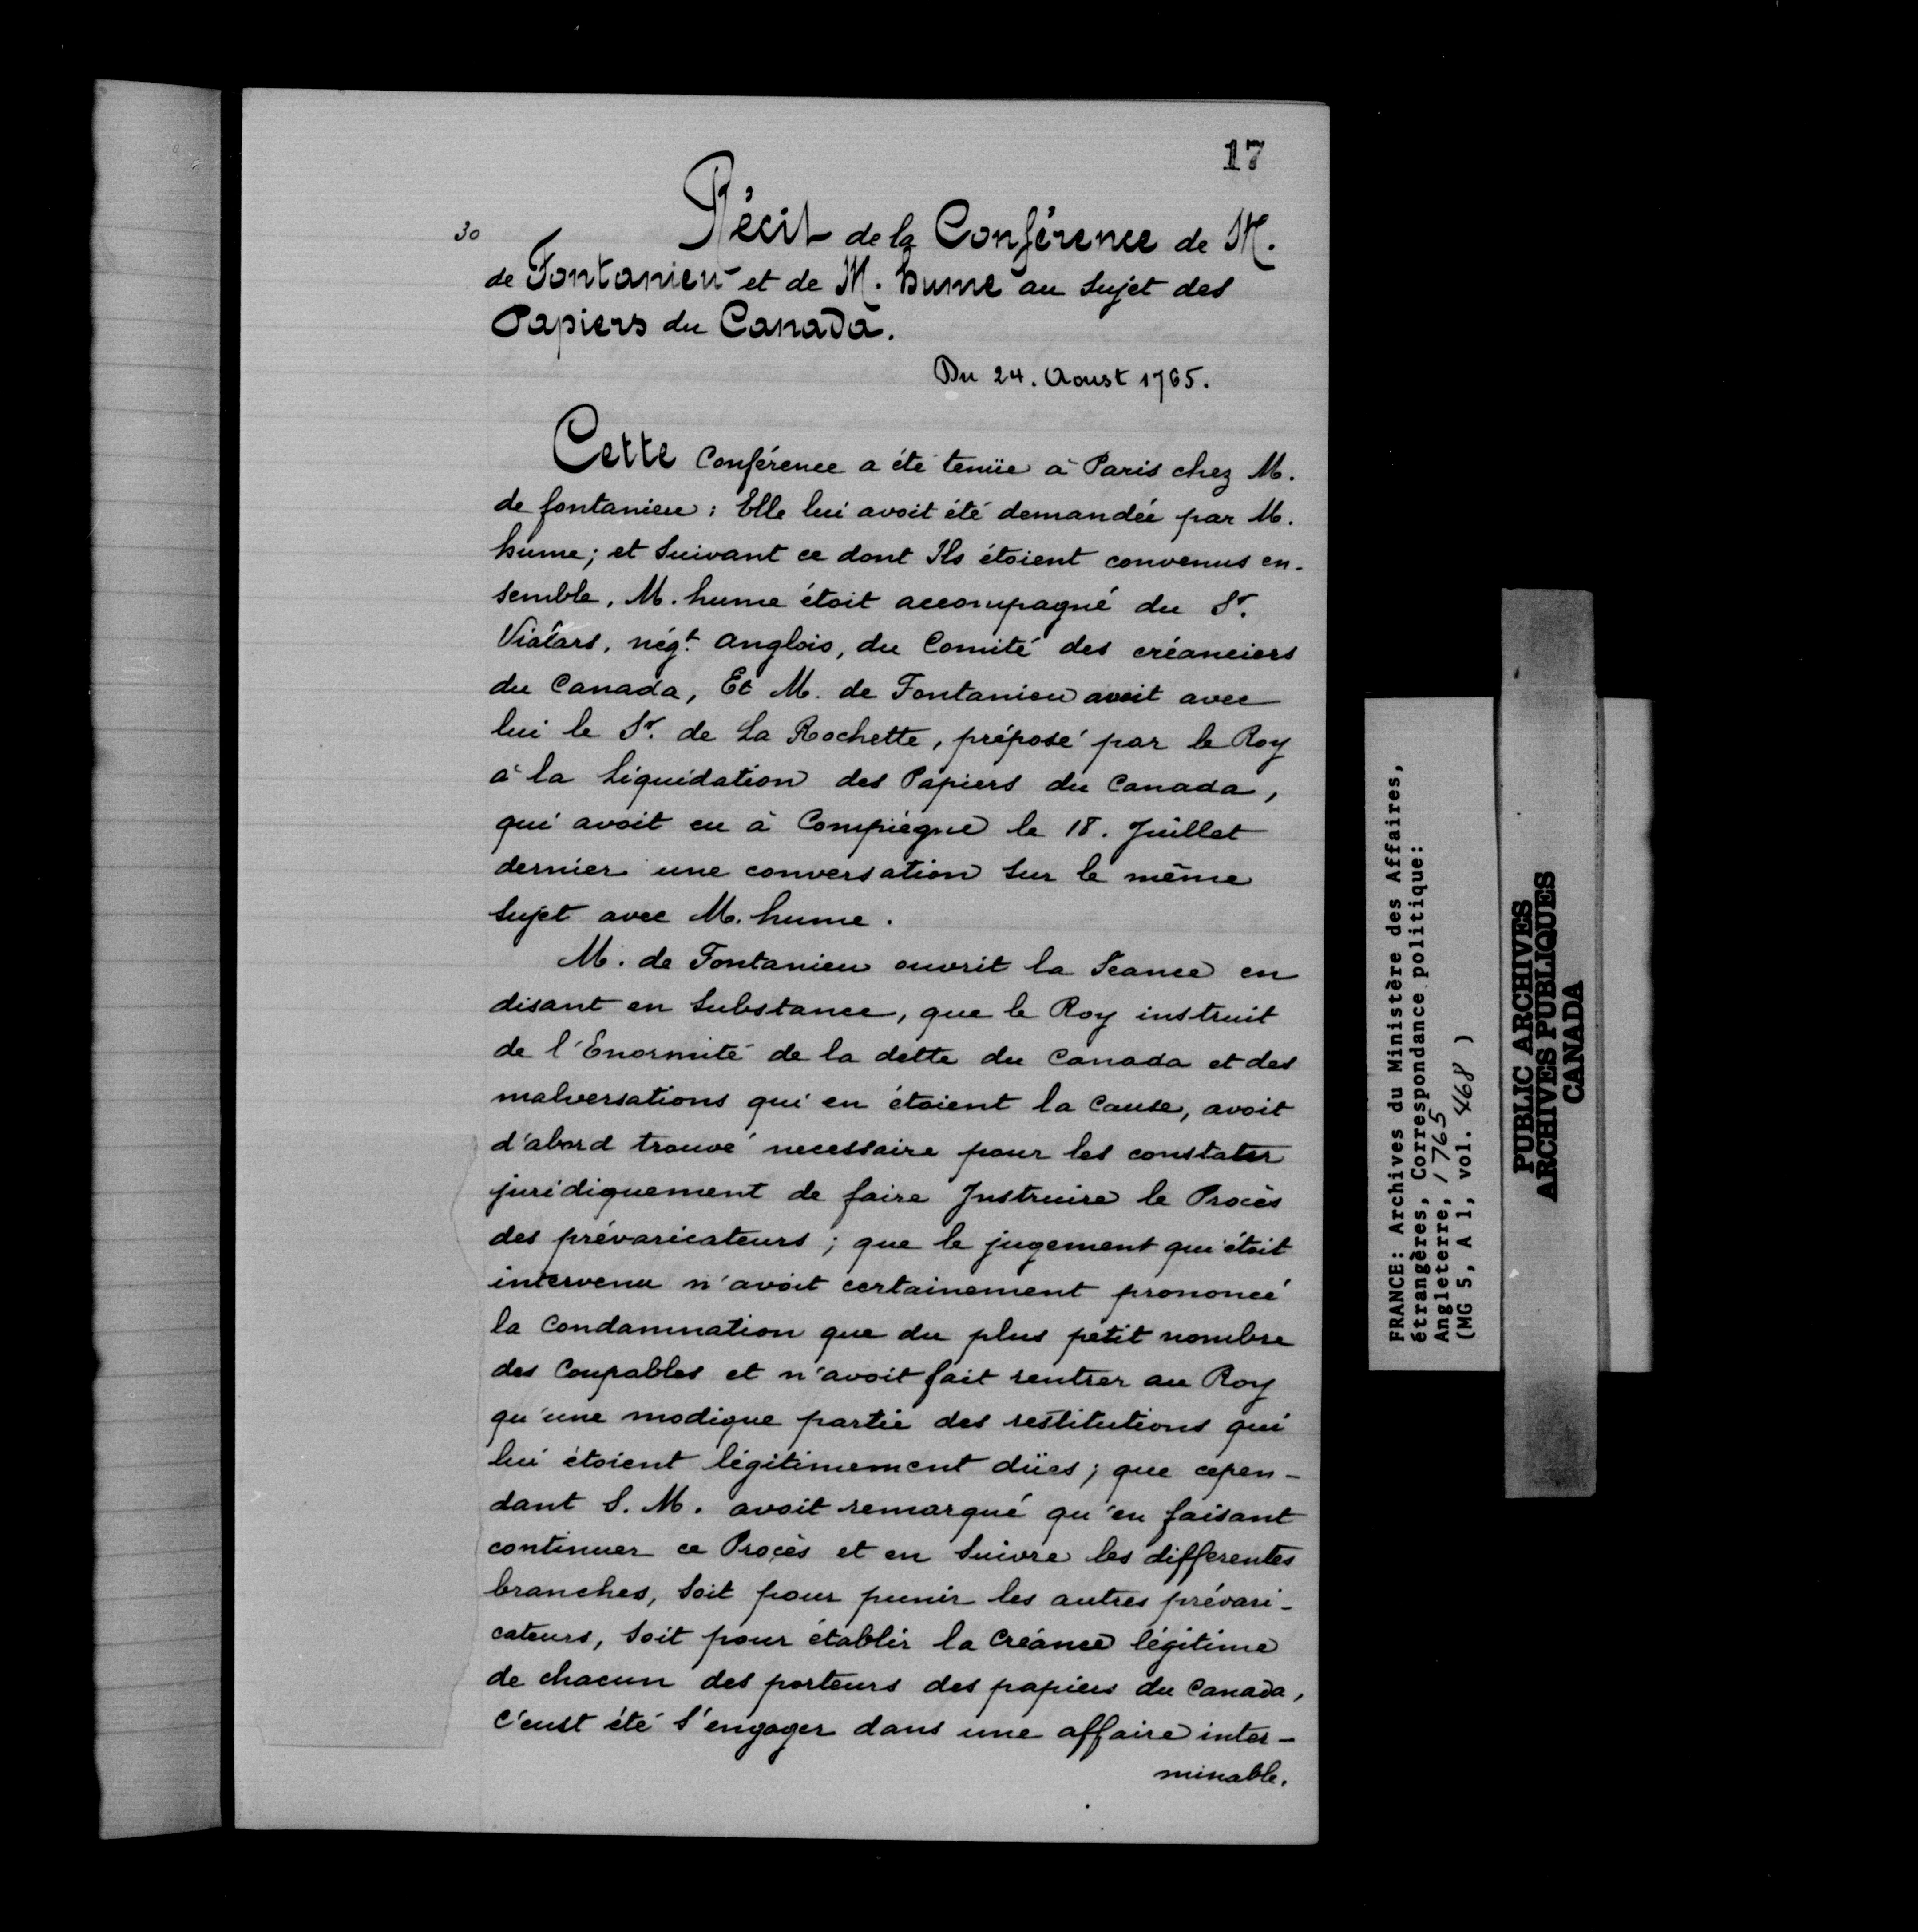 17
30
Récit de la Conférence de M.
de Fontanieu et de M. hume au Sujet des
Papiers du Canada.
Du 24. Aoust 1765.
Cette Conférence a été tenüe à Paris chez M.
de fontanieu : Elle lui avoit été demandée par M.
hume ; et Suivant ce dont Ils étoient convenus en-
semble, M. hume étoit accompagné du Sr.
Vialars, négt. anglois, du Comité des créanciers
du Canada, Et M. de Fontanieu avoit avec
lui le Sr. de La Rochette, préposé par le Roy
à la Liquidation des Papiers du Canada,
qui avoit eu à Compiégne le 18. Juillet
dernier une conversation Sur le même
Sujet avec M. hume.
M. de Fontanieu ouvrit la Séance en
disant en Substance, que le Roy instruit
de l'Enormité de la dette du Canada et des
malversations qui en étoient la Cause, avoit
d'abord trouvé necessaire pour les constater
juridiquement de faire Instruire le Procès
des prévaricateurs ; que le jugement qui étoit
intervenu n'avoit certainement prononcé
la Condamnation que du plus petit nombre
des Coupables et n'avoit fait rentrer au Roy
qu'une modique partie des restitutions qui
lui étoient légitimement dües ; que cepen-
dant S. M. avoit remarqué qu'en faisant
continuer ce Procès et en Suivre les differentes
branches, Soit pour punir les autres prévari-
cateurs, Soit pour établir la Créance légitime
de chacun des porteurs des papiers du Canada,
c'eust été S'engager dans une affaire inter-
minable.
FRANCE: Archives du Ministère des Affaires,
étrangères, Correspondance politique:
Angleterre, 1765
(MG 5, A 1, vol. 468 )
PUBLIC ARCHIVES
ARCHIVES PUBLIQUES
CANADA